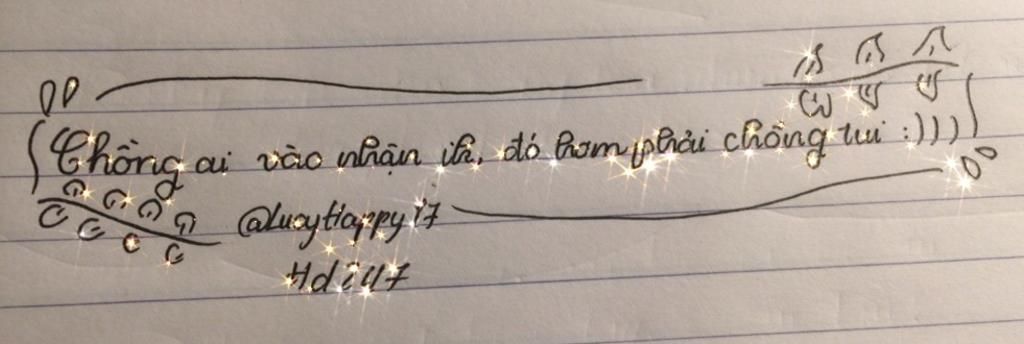 Chồng ai vào nhận ik, đó hom phải chồng tui :))))
@LucyHappyi7
Hdi47